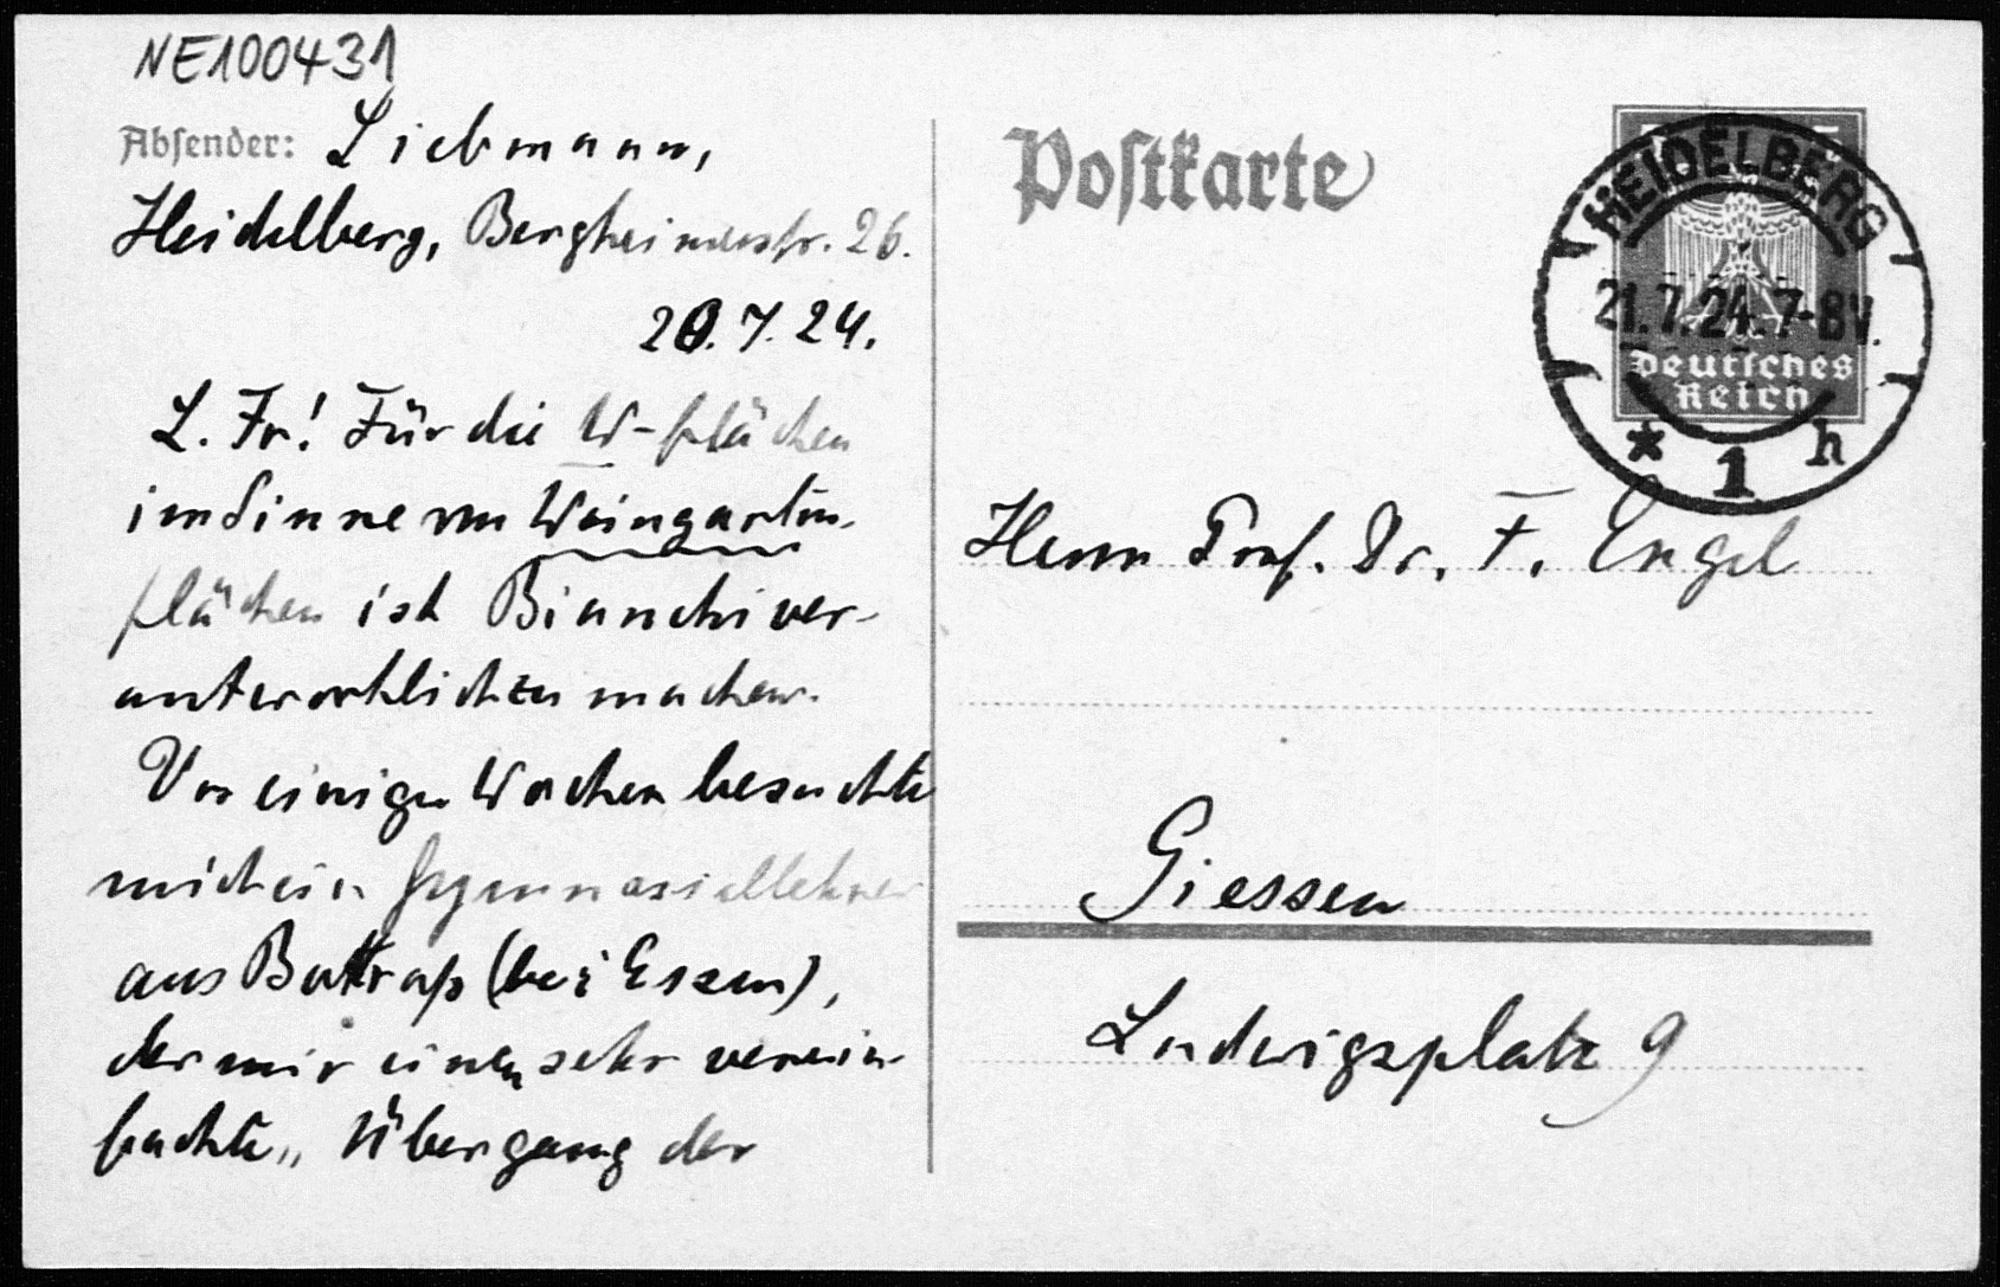 NE100431
Absender: Liebmann,
Heidelberg, Bergheimerstr. 26.
20.7.24.
L. Fr! Für die W-flächen
im Sinne von Weingarten-
flächen ist Bianchi ver-
antwortlich zu machen.
Vor einigen Wochen besuchte
mich ein Gymnasiallehrer
aus Bottrop (bei Essen),
der mir einen sehr verein-
fachten Übergang der
Postkarte
HEIDELBERG
21.7.24.7-8V.
* 1 h
Deutsches
Reich
Herrn Prof. Dr. F. Engel
Giessen
Ludwigsplatz 9